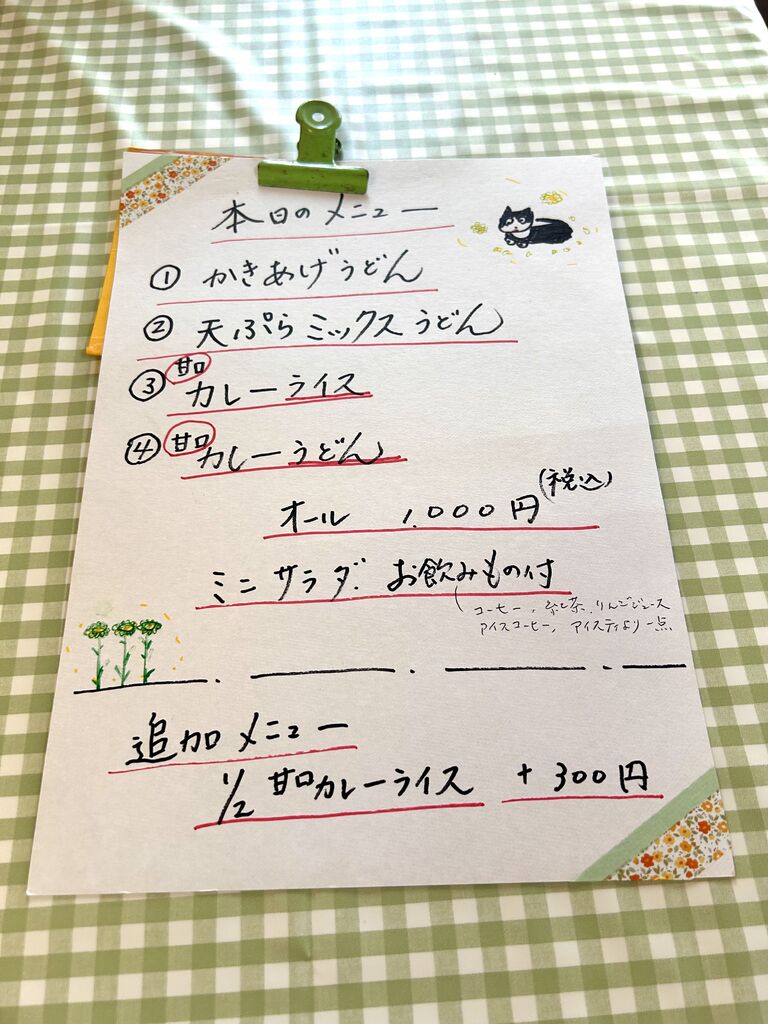 本日のメニュー
① かきあげうどん
② 天ぷらミックスうどん
③ 甘口 カレーライス
④ 甘口 カレーうどん
オール 1.000円 (税込)
ミニサラダ. お飲みもの付
コーヒー, 紅茶, りんごジュース
アイスコーヒー, アイスティより一点
追加メニュー
1/2 甘口カレーライス + 300円